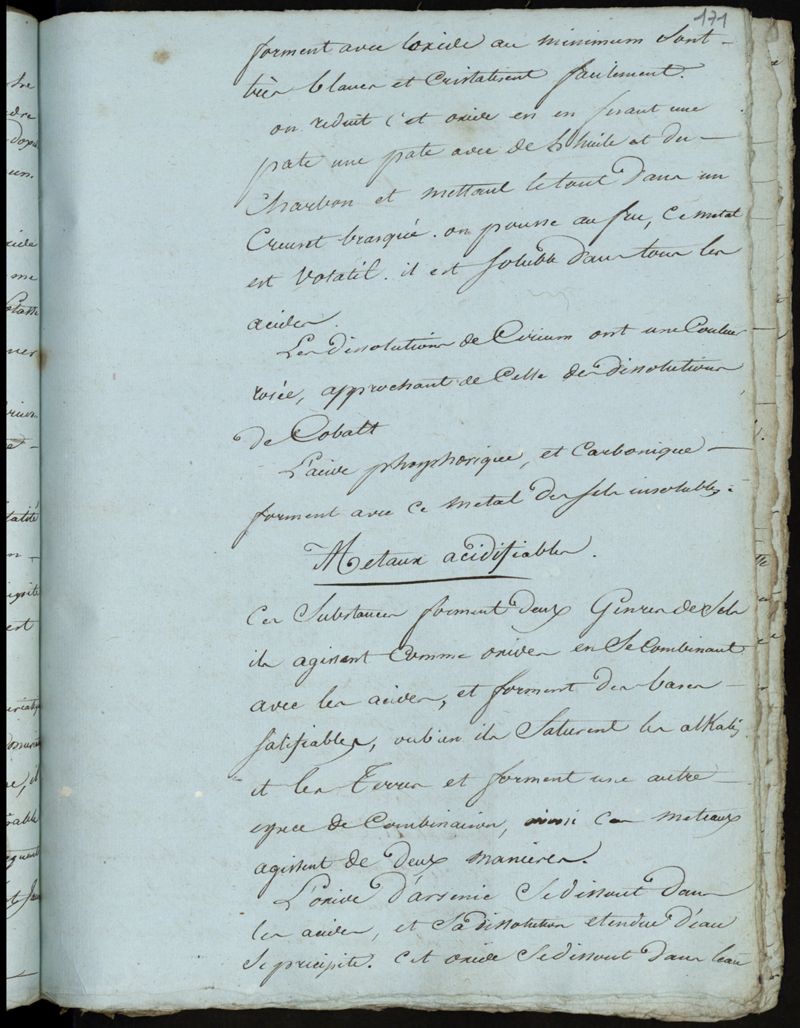 171
forment avec l'oxide au minimum sont
très blancs et Cristalisent facilement.
on reduit c'et oxide en en fesant une
pate une pate avec de L'huile et du
charbon et mettant le tout dans un
Creuset brasqué. on pousse au feu, Ce metal
est Volatil. il est soluble dans tous les
acides.
Les dissolutions de Cérium ont une Couleur
rosée, approchant de Celle des dissolutions
de Cobalt
L'acide phosphorique, et Carbonique
forment avec ce metal des sels insolubles.
Metaux acidifiables.
Ces Substances forment deux Genres de Sels
ils agissent Comme oxides en Se Combinant
avec les acides, et forment des bases
salifiables, oubien ils Saturent les alkalis
et les Terres et forment une autre
espece de Combinaison, ainsi Ces meteaux
agissent de deux manieres.
L'oxide d'arsenic Se dissout dans
les acides, et Sa dissolution etendue d'eau
Se precipite. Cet oxide Se dissout dans leau